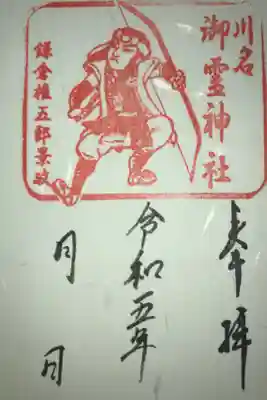 川名
御霊神社
鎌倉権五郎景政
奉拝
令和五年
月
日